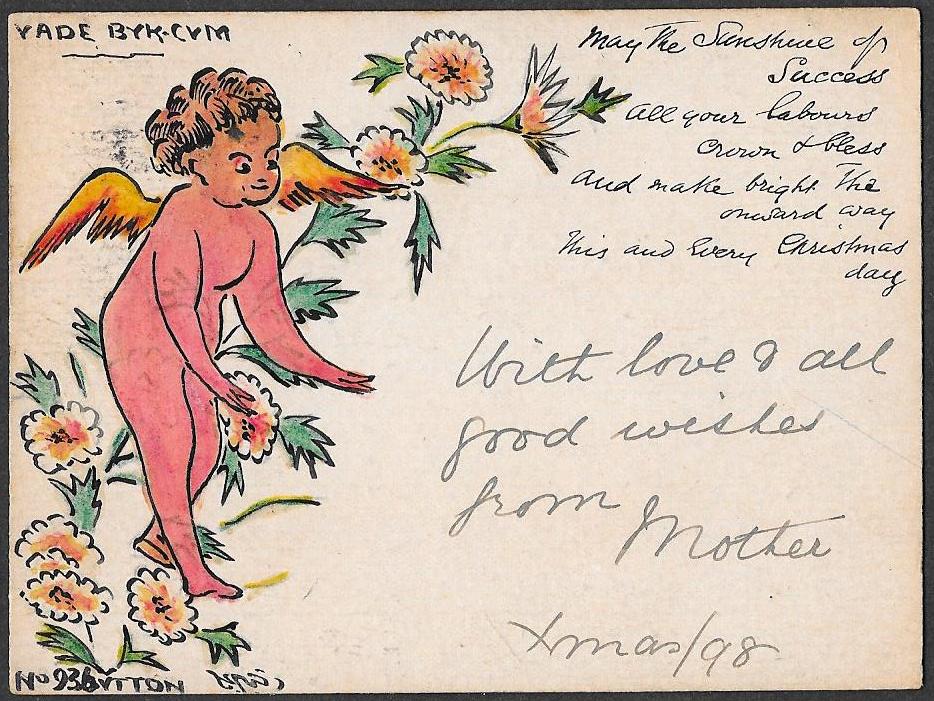 VADE BYK-CVM
May The Sunshine of
Success
all your labours
crown & bless
and make bright The
onward way
This and Every Christmas
day
With love & all
good wishes
from
Mother
Xmas/98
No 936